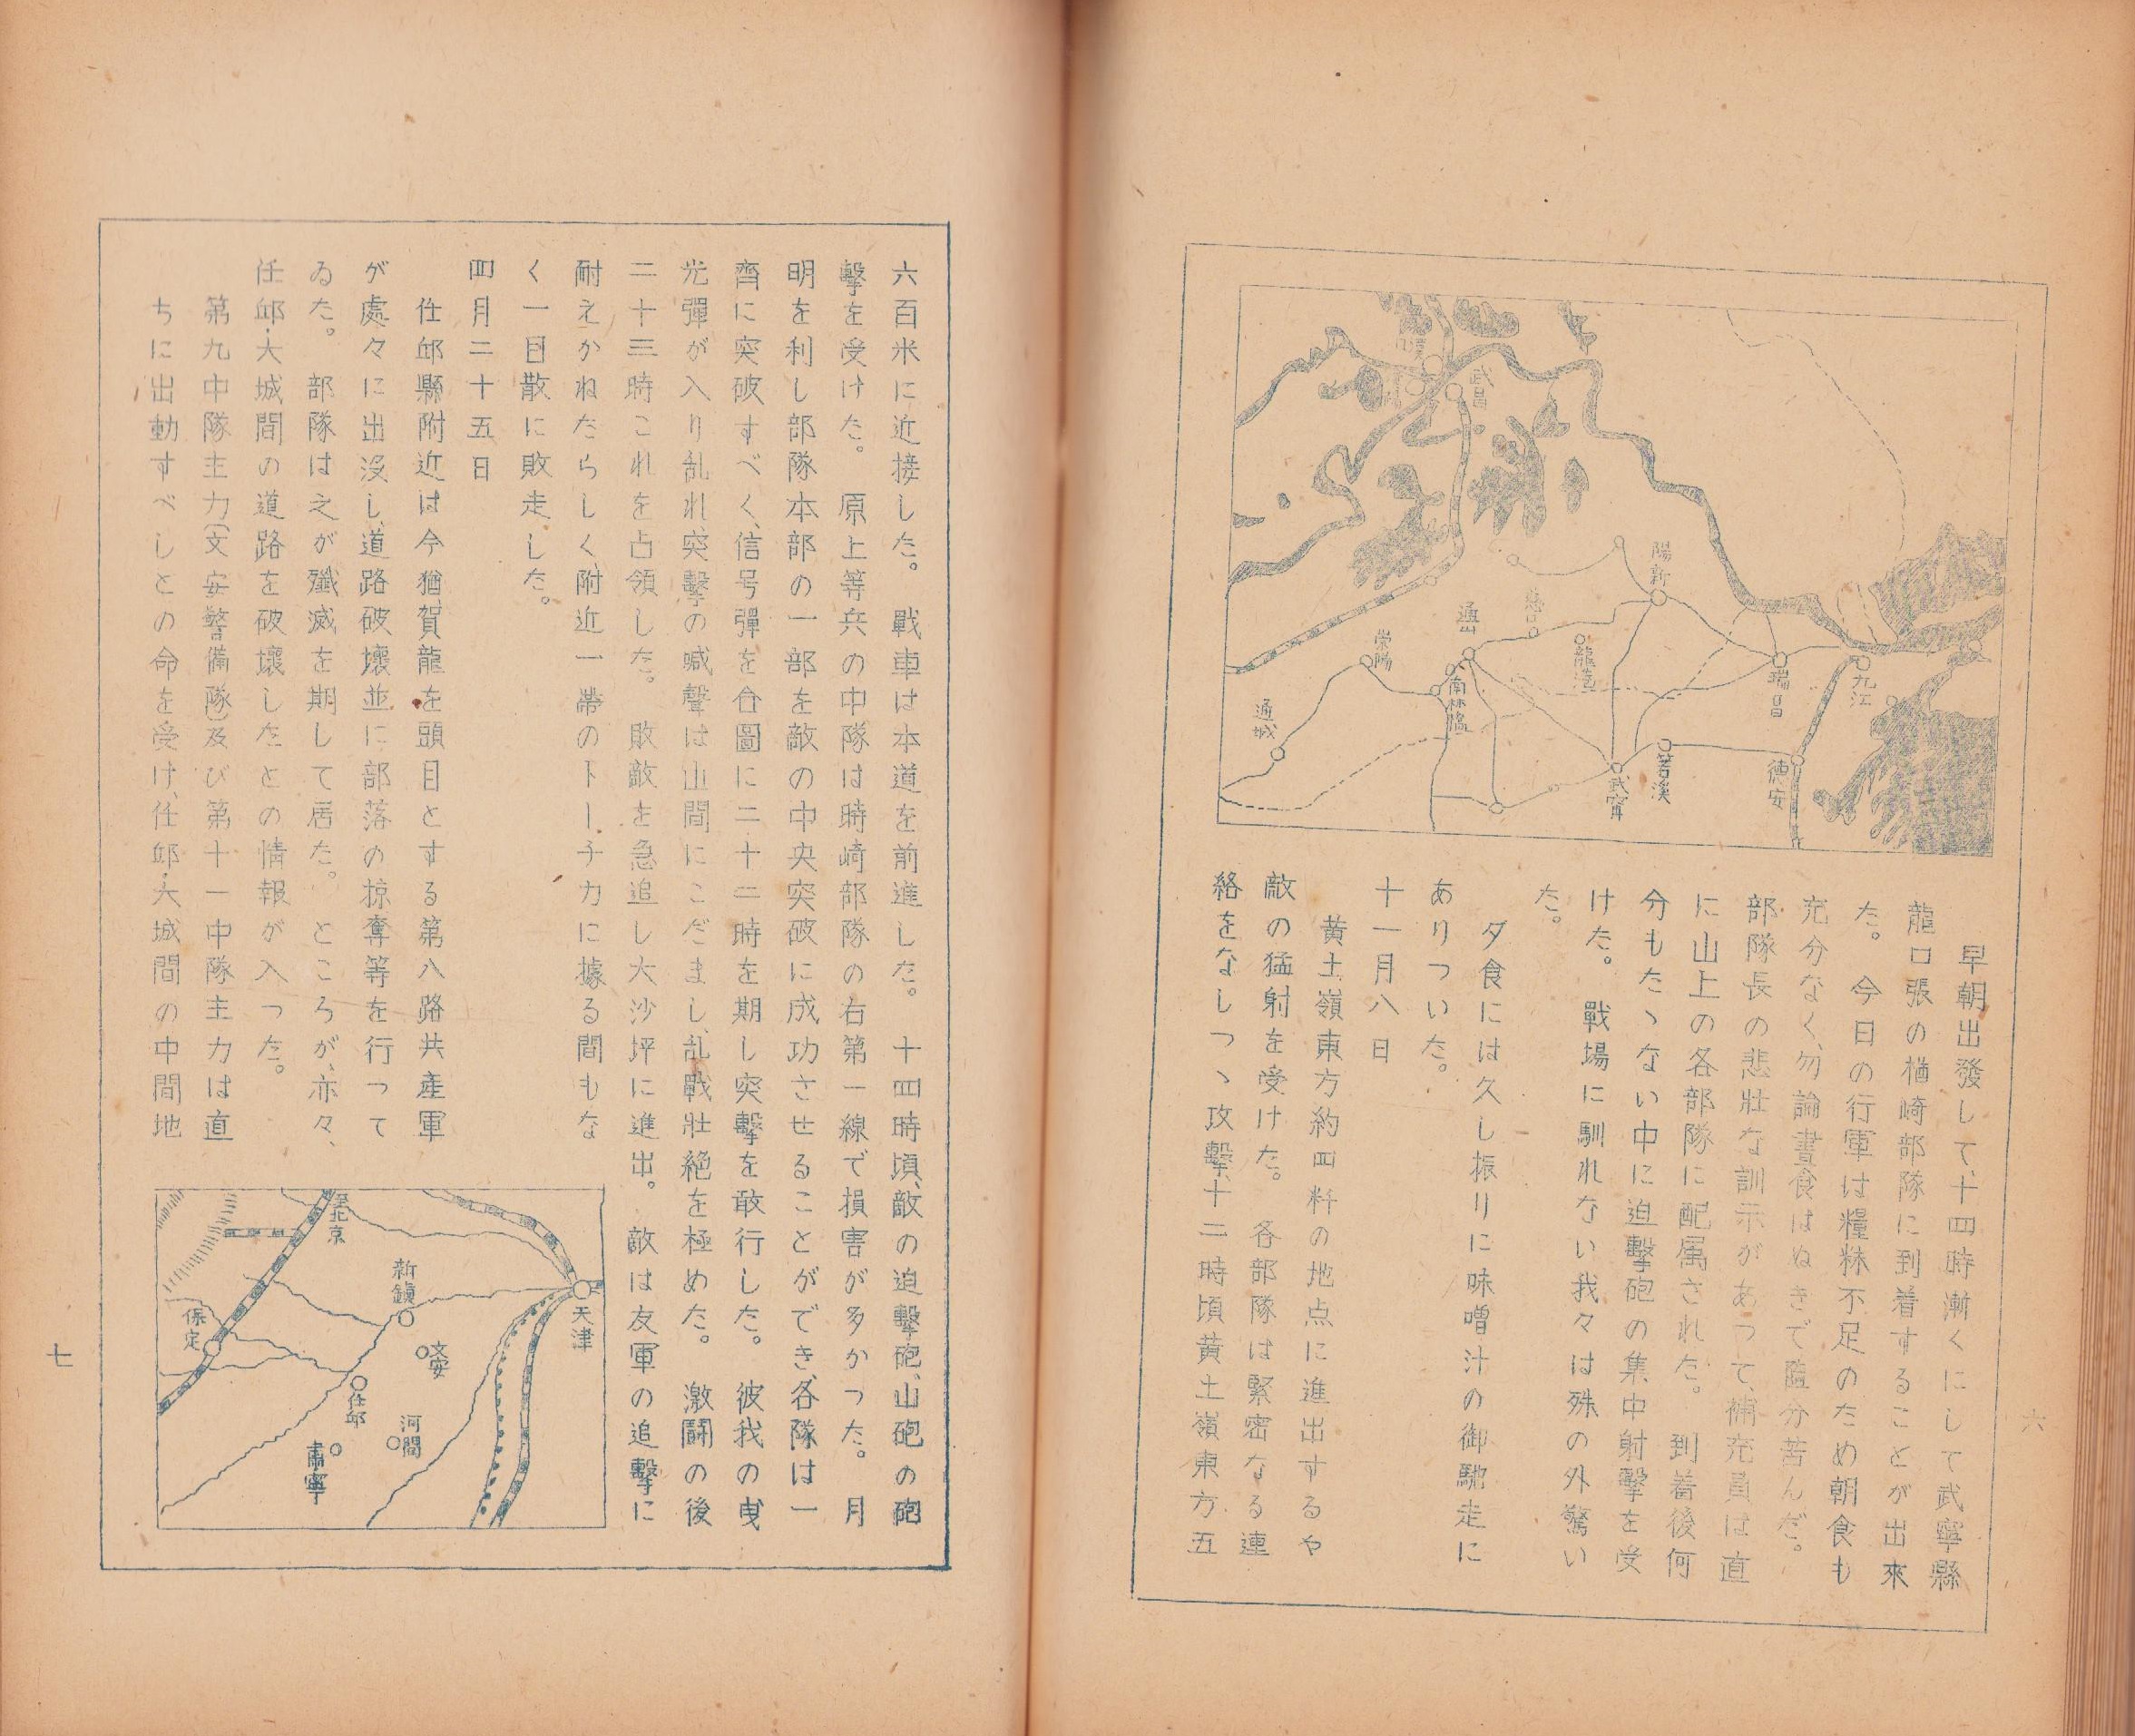 六
武昌
陽新
通山
崇陽
龍港
南林橋
通城
瑞昌
九江
箬溪
武寧
德安
早朝出發して、十四時漸くにして武寧縣
龍口張の楢崎部隊に到着することが出來
た。今日の行軍は糧秣不足のため朝食も
充分なく、勿論晝食はぬきで隨分苦んだ。
部隊長の悲壯な訓示があつて、補充員は直
に山上の各部隊に配属された。到着後何
分もたゝない中に迫擊砲の集中射擊を受
けた。戰場に馴れない我々は殊の外驚い
た。
夕食には久し振りに味噌汁の御馳走に
ありついた。
十一月八日
黄土嶺東方約四粁の地点に進出するや
敵の猛射を受けた。各部隊は緊密なる連
絡をなしつゝ攻擊、十二時頃黄土嶺東方五
六百米に近接した。戰車は本道を前進した。十四時頃、敵の迫擊砲、山砲の砲
擊を受けた。原上等兵の中隊は時崎部隊の右第一線で損害が多かつた。月
明を利し部隊本部の一部を敵の中央突破に成功させることができ、各隊は一
齊に突破すべく、信号彈を合圖に二十二時を期し突擊を敢行した。彼我の曳
光彈が入り乱れ、突擊の喊聲は山間にこだまし、乱戰壯絶を極めた。激鬪の後
二十三時これを占領した。敗敵を急追し大沙坪に進出。敵は友軍の追擊に
耐えかねたらしく、附近一帶のトーチカに據る間もな
く一目散に敗走した。
四月二十五日
任邱縣附近は今猶賀龍を頭目とする第八路共産軍
が處々に出没し、道路破壞並に部落の掠奪等を行つて
ゐた。部隊は之が殲滅を期して居た。ところが、亦々、
任邱・大城間の道路を破壞したとの情報が入つた。
第九中隊主力(文安警備隊)及び第十一中隊主力は直
ちに出動すべしとの命を受け、任邱・大城間の中間地
至北京
天津
新鎮
保定
文安
任邱
河間
肅寧
七